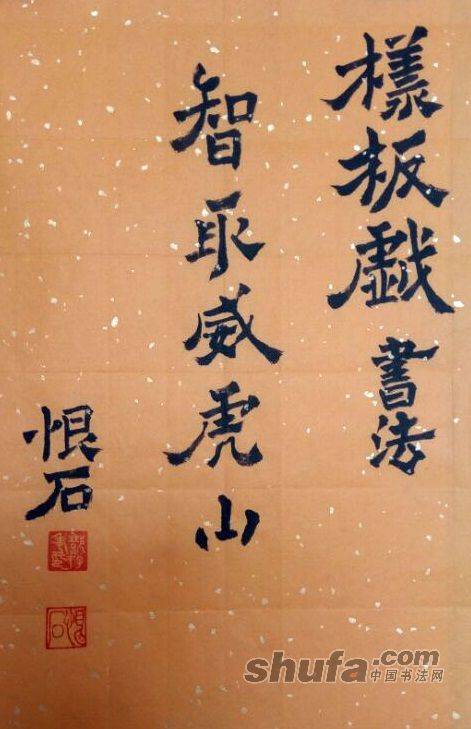 樣板戯書法
智取威虎山
恨石
恨石
shufa.com
中国书法网